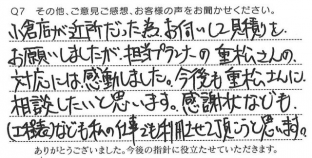 Q7 その他、ご意見ご感想、お客様の声をお聞かせください。
小倉店が近所だった為、お伺いして見積りを
お願いしましたが、担当プランナーの重松さんの、
対応には感動しました。今後も重松さんに、
相談したいと思います。感謝状なども、
(工程表)なども私の仕事でも利用させて頂こうと思います。
ありがとうございました。今後の指針に役立たせていただきます。